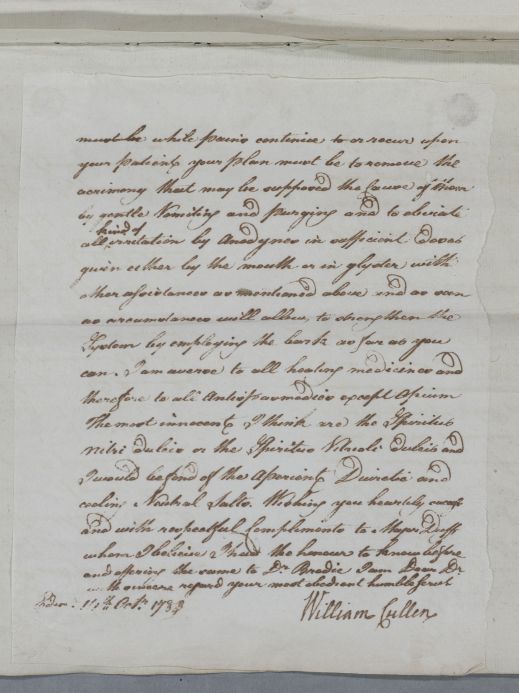 must be while pains continue to or recur upon
your patient, your plan must be to remove the
acrimony that may be supposed the Cause of them
by gentle Vomiting and purging and to obviate
all kind of irritation by Anodynes in sufficient doses
given either by the mouth or in glyster with
other assistances as mentioned above and as soon
as circumstances will allow, to strengthen the
System by employing the bark as far as you
can. I am averse to all heating medicines and
therefore to all Antispasmodics except Opium
The most innocent, I think are the Spiritus
Nitri dulcis or the Spiritus Vitrioli dulcis and
I would be fond of the Aperient, Diuretic and
cooling Neutral Salts. Wishing you heartily success
and with respectful Compliments to Major Duff
whom I believe I had the honour to know before
and offering the same to Dr. Brodie I am Dear Dr
with sincere regard your most obedient humble Servt
Octr. 178
William Cullen